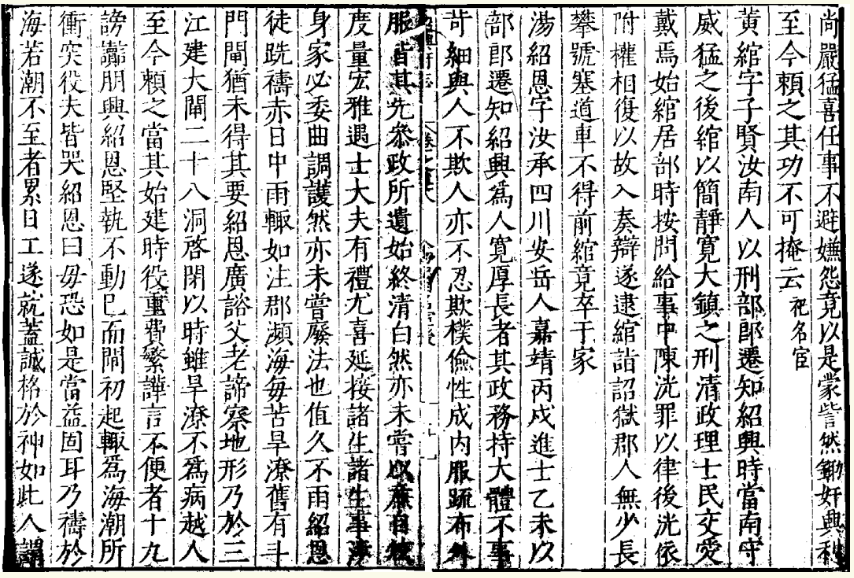 尚嚴猛喜任事不避嫌怨竟以是蒙訾然鋤奸興利
至今頼之其功不可掩云祀名宦
黃綰字子賢汝南人以刑部郎遷知紹興時當南守
威猛之後綰以簡靜寛大鎮之刑清政理士民交愛
戴焉始綰居部時按問給事中陳洸罪以律後洸依
附權相復以故入奏辯遂逮綰詣詔獄郡人無少長
攀號塞道車不得前綰竟卒于家
湯紹恩字汝承四川安岳人嘉靖丙戌進士乙未以
部郎遷知紹興爲人寛厚長者其政務持大體不事
苛細與人不欺人亦不忍欺樸儉性成内服䟽布外
服皆其先參政所遺始終清白然亦未嘗以廉自
度量宏雅遇士大夫有禮尤喜延接諸生諸生事渉
身家必委曲調護然亦未嘗廢法也值久不雨紹恩
徒跣禱赤日中雨輙如注郡瀕海每苦旱潦舊有斗
門閘猶未得其要紹恩廣諮父老諦察地形乃於三
江建大閘二十八洞啓閉以時雖旱潦不爲病越人
至今頼之當其始建時役重費繁譁言不便者十九
謗讟朋興紹恩堅執不動已而閘初起輙爲海潮所
衝突役夫皆哭紹恩曰毋恐如是當益固耳乃禱於
海若潮不至者累日工遂就蓋誠格於神如此人謂